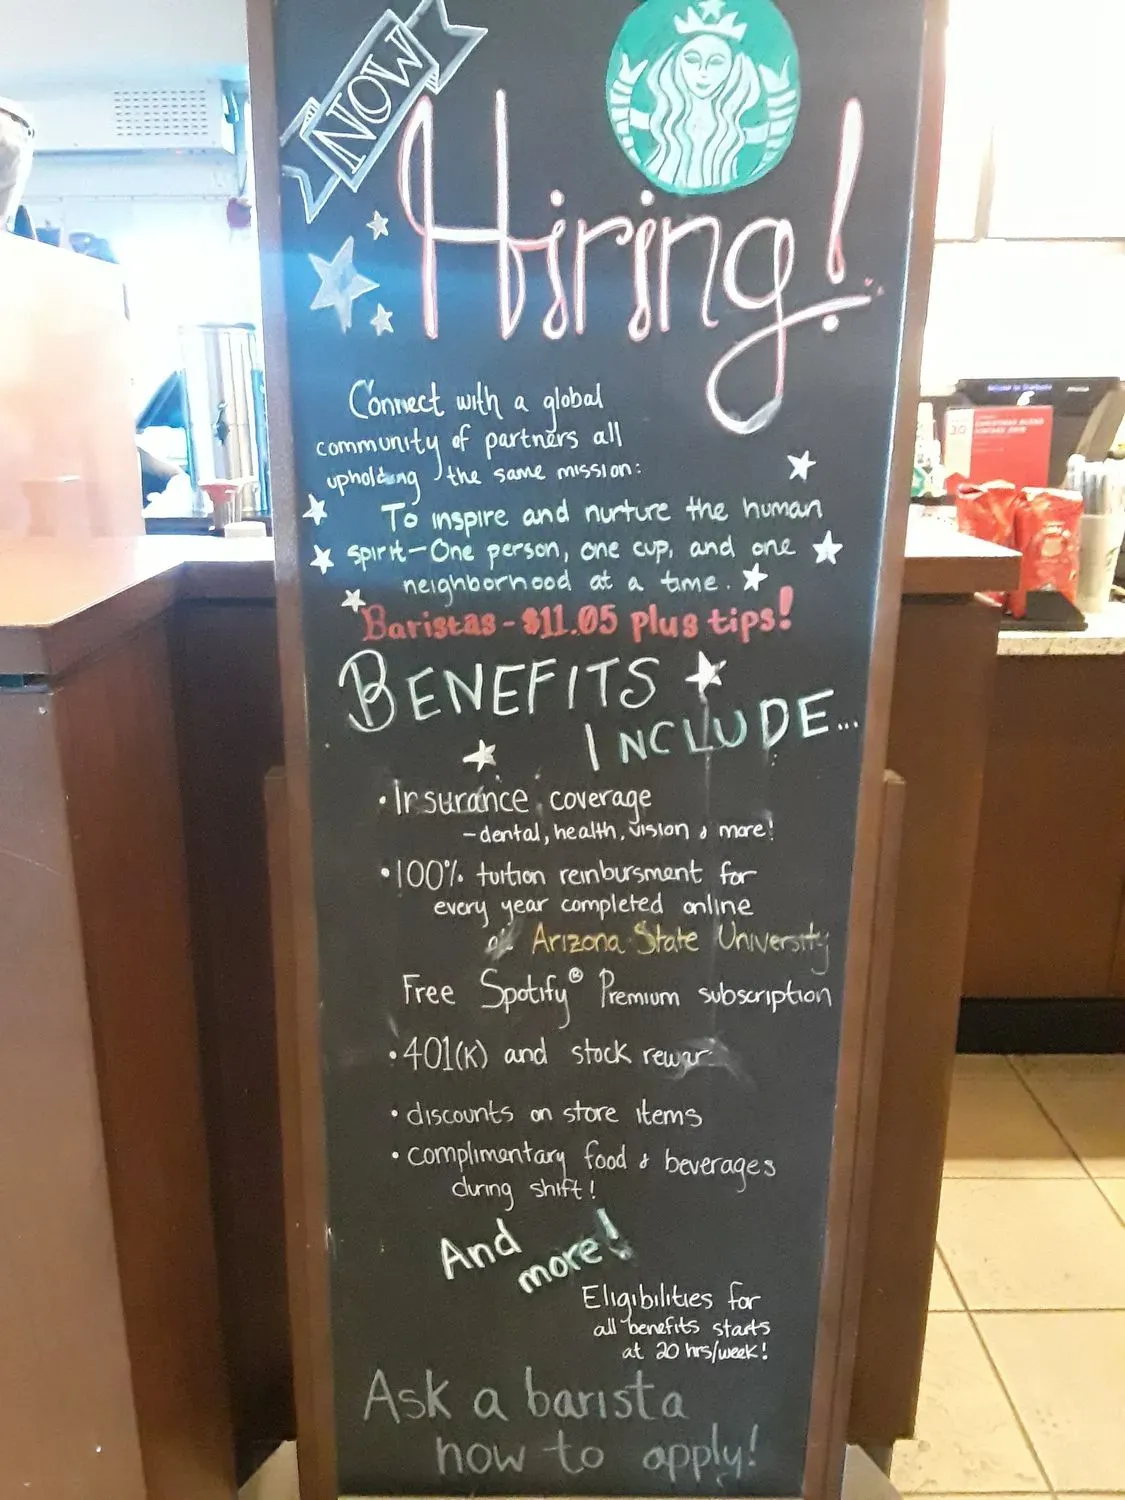 NOW
Hiring!
Connect with a global
community of partners all
upholding the same mission:
To inspire and nurture the human
spirit-One person, one cup, and one
neighborhood at a time.
Baristas - $11.05 plus tips!
BENEFITS
INCLUDE...
• Insurance coverage
- dental, health, vision & more!
• 100% tuition reinbursment for
every year completed online
Arizona State University
Free Spotify® Premium subscription
• 401(K) and stock rewar
• discounts on store items
• complimentary food & beverages
during shift!
And
more!
Eligibilities for
all benefits starts
at 20 hrs/week!
Ask a barista
how to apply!